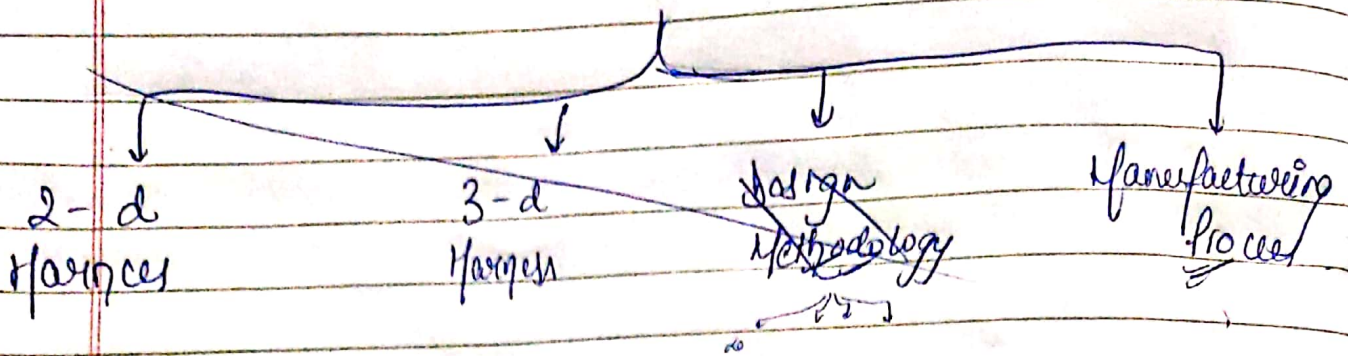 2-d
Harnces
3-d
Harness
Design
Methodology
Manufacturing
Process